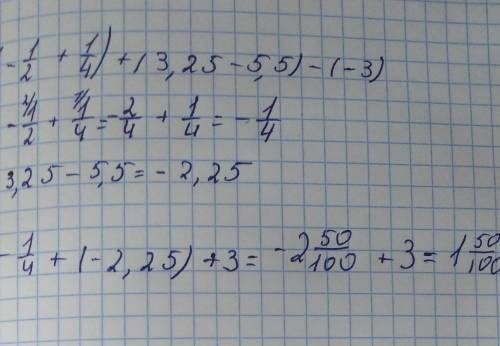 (-1/2 + 1/4) + (3,25 - 5,5) - (-3)
-1/2 + 1/4 = -2/4 + 1/4 = -1/4
3,25 - 5,5 = - 2,25
-1/4 + (-2,25) + 3 = -2 50/100 + 3 = 1 50/100